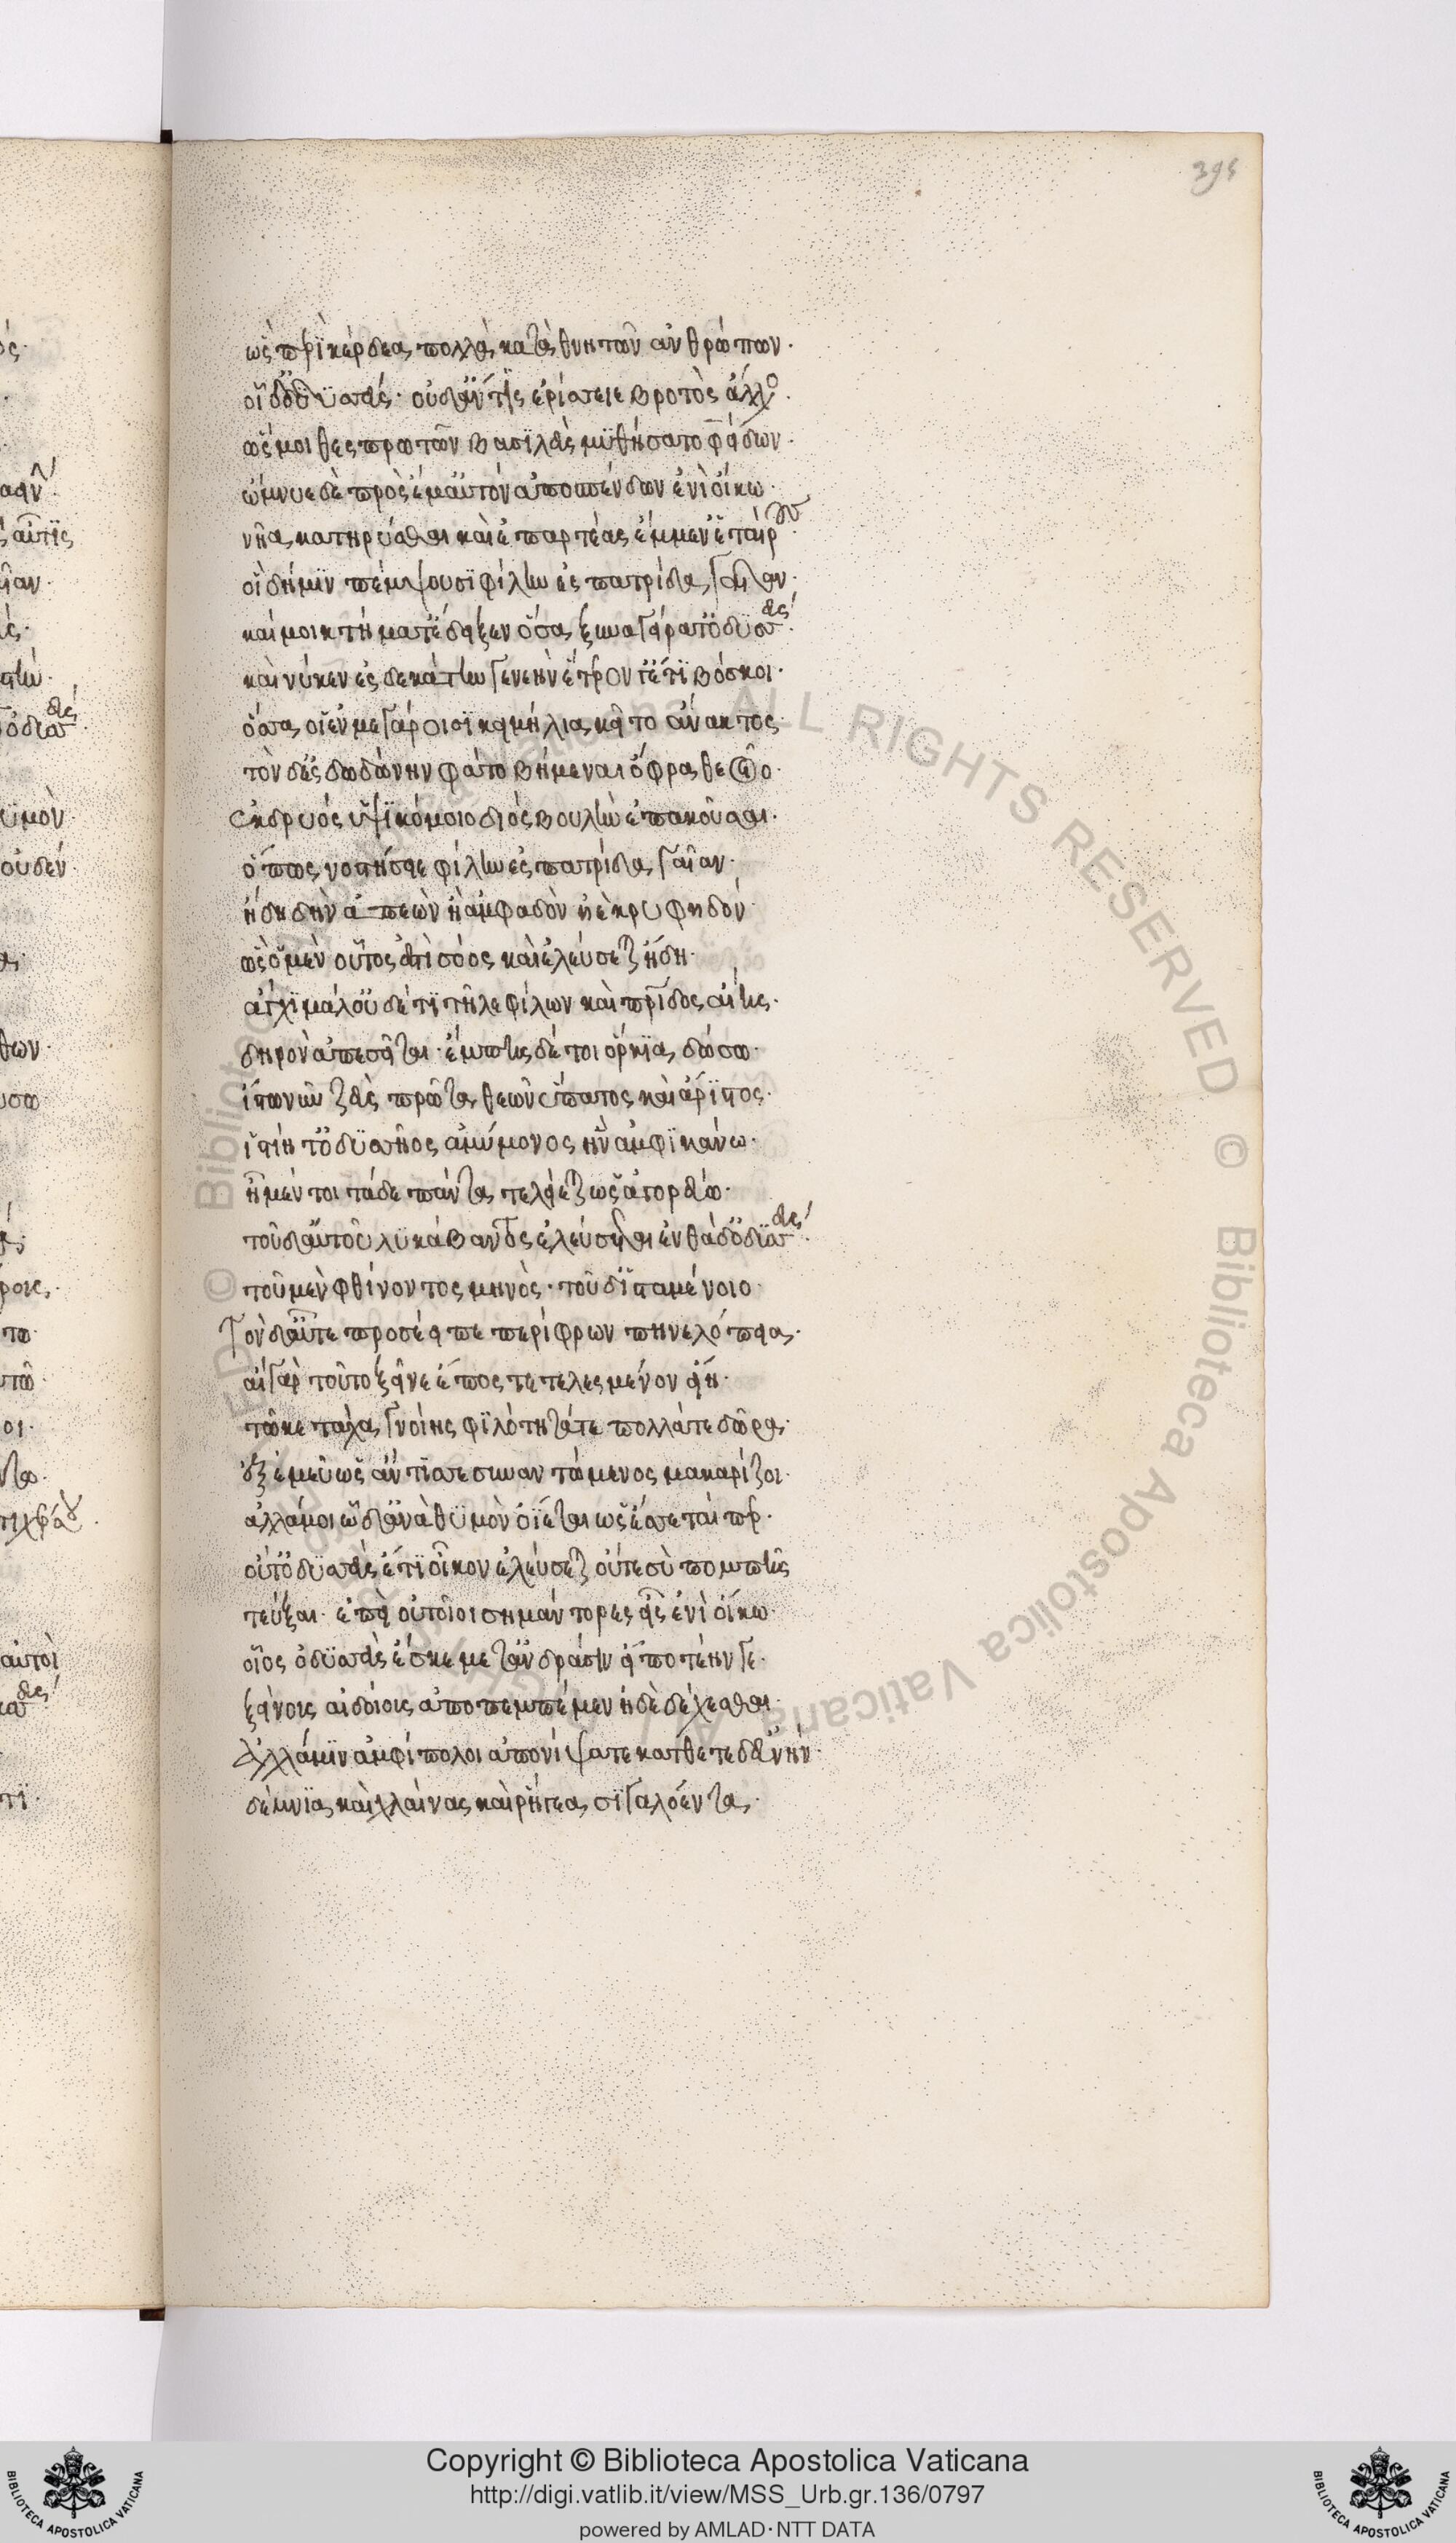 395
ὣς περὶ κέρδεα πολλὰ καταθνητῶν ἀνθρώπων·
οἶδ' ὀδυσεύς· οὐδ' ἄν τις ἐρίσειε βροτὸς ἄλλος·
ὥς μοι θεσπρωτῶν βασιλεὺς μυθήσατο φείδων·
ὤμνυε δὲ πρὸς ἔμ' αὐτὸν ἀποσπένδων ἐνὶ οἴκω·
νῆα κατηρύσθαι καὶ ἐπαρτέας ἔμμεν ἑταίρους·
οἳ δή μιν πέμψουσι φίλην ἐς πατρίδα γαῖαν·
καί μοι κτήματ' ἔδειξεν ὅσα ξυναγείρατ' ὀδυσσεύς·
καί νύ κεν ἐς δεκάτην γενεὴν ἕτερόν γ' ἔτι βόσκοι·
ὅσσα οἱ ἐν μεγάροισι κειμήλια κεῖτο ἄνακτος·
τὸν δ' ἐς δωδώνην φάτο βήμεναι ὄφρα θεοῖο·
ἐκ δρυὸς ὑψικόμοιο διὸς βουλὴν ἐπακούσαι·
ὅπως νοστήσειε φίλην ἐς πατρίδα γαῖαν·
ἤδη δὴν ἀπεὼν ἢ ἀμφαδὸν ἠὲ κρυφηδόν·
ὣς ὁ μὲν οὕτος ἐστὶ σόος καὶ ἐλεύσεται ἤδη·
ἄγχι μάλ' οὐδ' ἔτι τῆλε φίλων καὶ πατρίδος αἴης·
δηρὸν ἀπεσεῖται· ἔμπης δέ τοι ὅρκια δώσω·
ἴστω νῦν ζεὺς πρῶτα θεῶν ὕπατος καὶ ἄριστος·
ἱστίη τ' ὀδυσῆος ἀμύμονος ἣν ἀμφικάνω·
ἦ μέν τοι τάδε πάντα τελείεται ὡς ἀγορεύω·
τοῦδ' αὐτοῦ λυκάβαντος ἐλεύσεται ἐνθάδ' ὀδυσσεύς·
τοῦ μὲν φθίνοντος μηνὸς· τοῦ δ' ἱσταμένοιο·
Τὸν δ' αὖτε προσέειπε περίφρων πηνελόπεια·
αἲ γὰρ τοῦτο ξεῖνε ἔπος τετελεσμένον εἴη·
τῶ κε τάχα γνοίης φιλότητά τε πολλά τε δῶρα·
ἐξ ἐμεῦ ὡς ἄν τίς σε συναντόμενος μακαρίζοι·
ἀλλά μοι ὧδ' ἀνὰ θυμὸν ὀΐεται ὡς ἔσεταί περ·
οὔτ' ὀδυσεὺς ἔτι οἶκον ἐλεύσεται οὔτε σὺ πομπῆς
τεύξαι· ἐπεὶ οὐ τοῖοι σημάντορες εἰσ' ἐνὶ οἴκω·
οἷος ὀδυσεὺς ἔσκε μετ' ἀνδράσιν εἴποτ' ἔην γε·
ξείνοις αἰδοίοις ἀποπεμπέμεν ἠδὲ δέχεσθαι·
Ἀλλά μιν ἀμφίπολοι ἀπονίψατε κάτθετε δ' εὐνήν·
δέμνια καὶ χλαίνας καὶ ῥήγεα σιγαλόεντα·